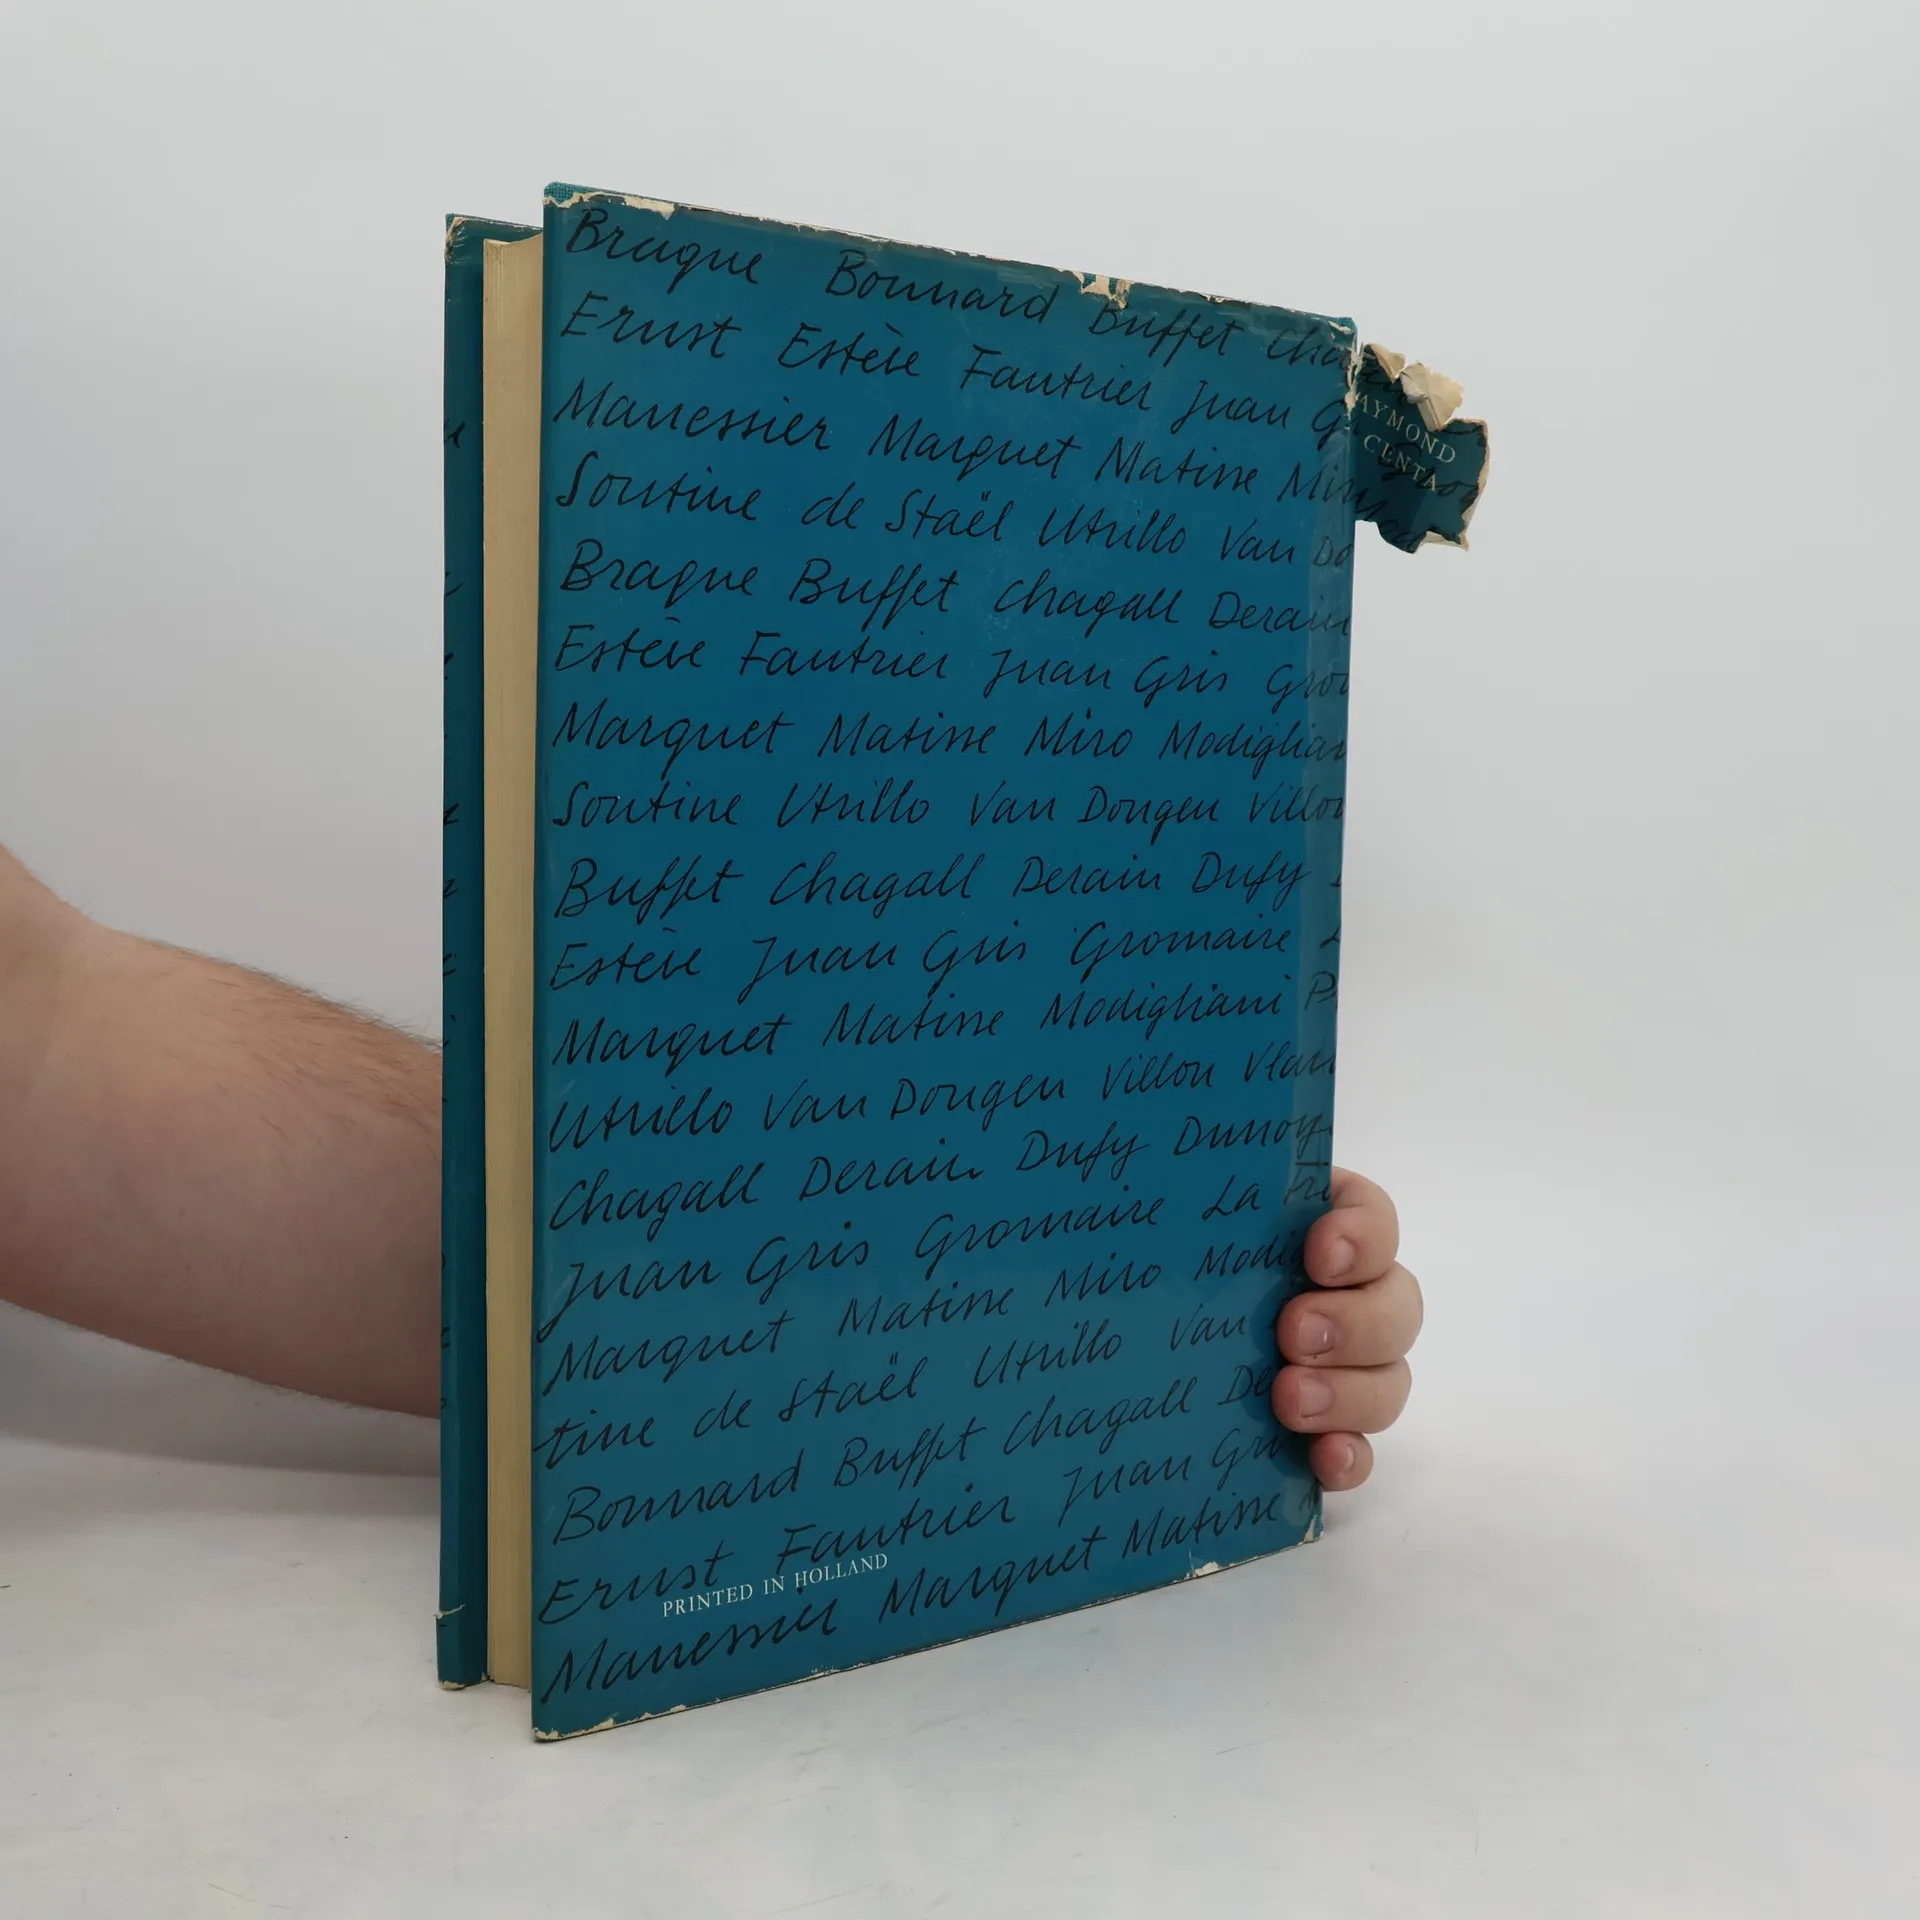 Braque Bonnard Buffet Cha
Ernst Estève Fautrier Juan G
Manessier Marquet Matisse Mir
Soutine de Staël Utrillo Van Do
Braque Buffet Chagall Derain
Estève Fautrier Juan Gris Gro
Marquet Matisse Miro Modiglian
Soutine Utrillo Van Dongen Villon
Buffet Chagall Derain Dufy
Estève Juan Gris Gromaire
Marquet Matisse Modigliani P
Utrillo Van Dongen Villon Vlam
Chagall Derain Dufy Dunoye
Juan Gris Gromaire La Fre
Marquet Matisse Miro Modig
tine de Staël Utrillo Van
Bonnard Buffet Chagall De
Ernst Fautrier Juan Gri
PRINTED IN HOLLAND
Manessier Marquet Matisse
AYMOND
CENTA